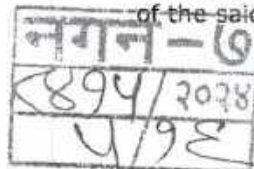 of the said
नगन - ७
८४१५/२०२४
५/१६